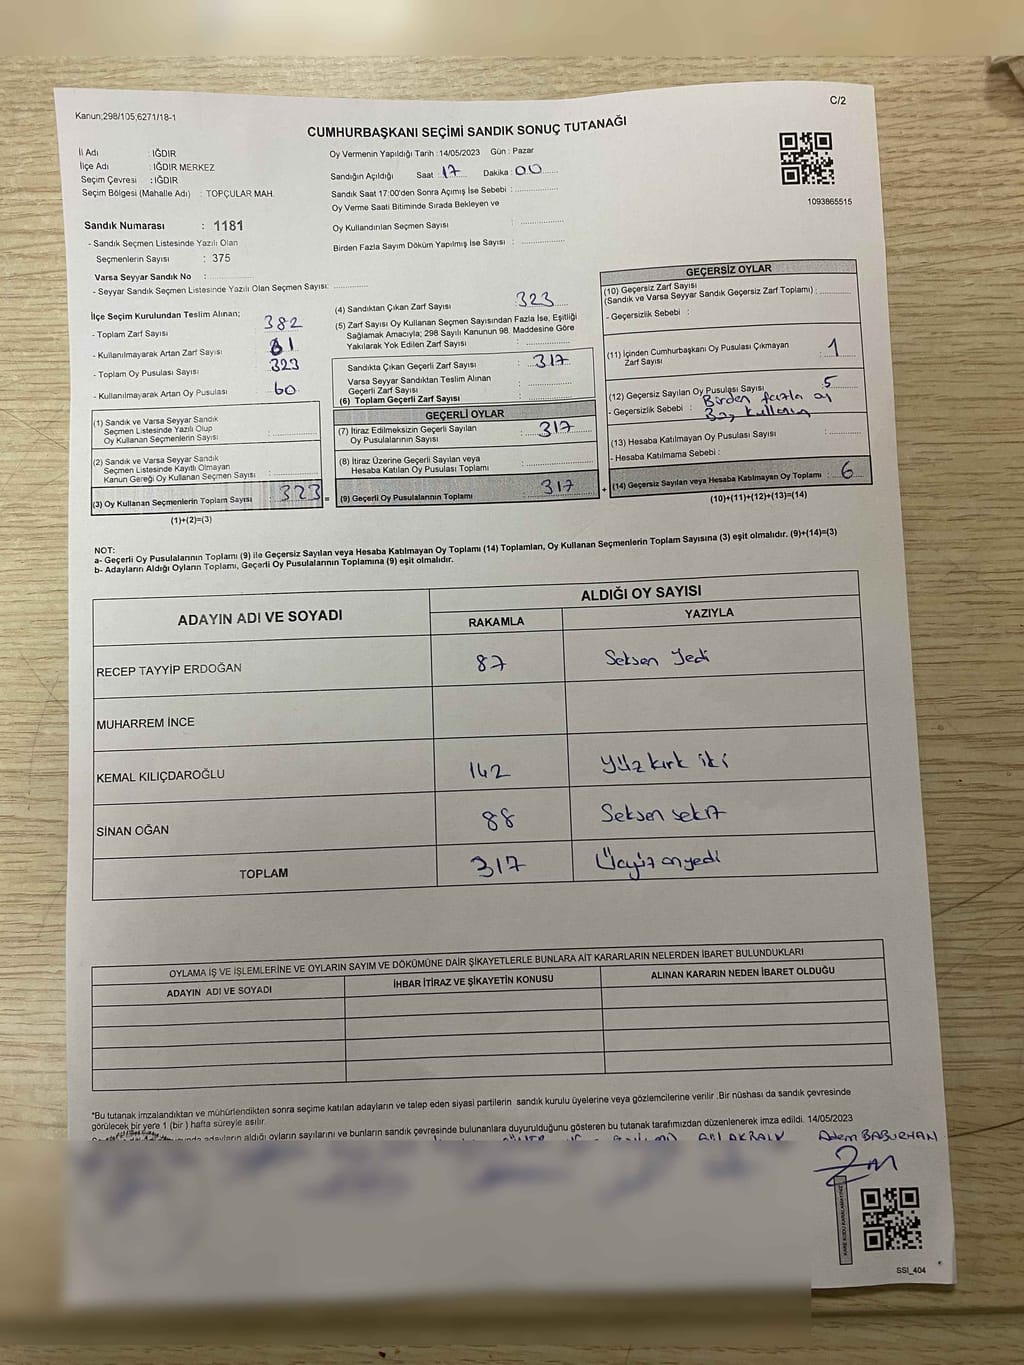 Kanun;298/105;6271/18-1
C/2
CUMHURBAŞKANI SEÇİMİ SANDIK SONUÇ TUTANAĞI
İl Adı : IĞDIR
İlçe Adı : IĞDIR MERKEZ
Seçim Çevresi : IĞDIR
Seçim Bölgesi (Mahalle Adı) : TOPÇULAR MAH.
Oy Vermenin Yapıldığı Tarih :14/05/2023 Gün : Pazar
Sandığın Açıldığı Saat : 17 Dakika : 00
Sandık Saat 17:00'den Sonra Açımış İse Sebebi :
Oy Verme Saati Bitiminde Sırada Bekleyen ve
Oy Kullandırılan Seçmen Sayısı :
Birden Fazla Sayım Döküm Yapılmış İse Sayısı :
1093865515
Sandık Numarası : 1181
- Sandık Seçmen Listesinde Yazılı Olan
Seçmenlerin Sayısı : 375
Varsa Seyyar Sandık No :
- Seyyar Sandık Seçmen Listesinde Yazılı Olan Seçmen Sayısı:
İlçe Seçim Kurulundan Teslim Alınan;
- Toplam Zarf Sayısı : 382
- Kullanılmayarak Artan Zarf Sayısı : 61
- Toplam Oy Pusulası Sayısı : 323
- Kullanılmayarak Artan Oy Pusulası : 60
(1) Sandık ve Varsa Seyyar Sandık
Seçmen Listesinde Yazılı Olup
Oy Kullanan Seçmenlerin Sayısı :
(2) Sandık ve Varsa Seyyar Sandık
Seçmen Listesinde Kayıtlı Olmayan
Kanun Gereği Oy Kullanan Seçmen Sayısı :
(3) Oy Kullanan Seçmenlerin Toplam Sayısı : 323 =
(1)+(2)=(3)
(4) Sandıktan Çıkan Zarf Sayısı : 323
(5) Zarf Sayısı Oy Kullanan Seçmen Sayısından Fazla İse, Eşitliği
Sağlamak Amacıyla; 298 Sayılı Kanunun 98. Maddesine Göre
Yakılarak Yok Edilen Zarf Sayısı :
Sandıkta Çıkan Geçerli Zarf Sayısı : 317
Varsa Seyyar Sandıktan Teslim Alınan
Geçerli Zarf Sayısı :
(6) Toplam Geçerli Zarf Sayısı :
GEÇERLİ OYLAR
(7) İtiraz Edilmeksizin Geçerli Sayılan
Oy Pusulalarının Sayısı : 317
(8) İtiraz Üzerine Geçerli Sayılan veya
Hesaba Katılan Oy Pusulası Toplamı :
(9) Geçerli Oy Pusulalarının Toplamı : 317 +
GEÇERSİZ OYLAR
(10) Geçersiz Zarf Sayısı
(Sandık ve Varsa Seyyar Sandık Geçersiz Zarf Toplamı) :
- Geçersizlik Sebebi :
(11) İçinden Cumhurbaşkanı Oy Pusulası Çıkmayan
Zarf Sayısı : 1
(12) Geçersiz Sayılan Oy Pusulası Sayısı : 5
- Geçersizlik Sebebi : Birden fazla oy
(13) Hesaba Katılmayan Oy Pusulası Sayısı :
- Hesaba Katılmama Sebebi :
(14) Geçersiz Sayılan veya Hesaba Katılmayan Oy Toplamı : 6
(10)+(11)+(12)+(13)=(14)
NOT:
a- Geçerli Oy Pusulalarının Toplamı (9) ile Geçersiz Sayılan veya Hesaba Katılmayan Oy Toplamı (14) Toplamları, Oy Kullanan Seçmenlerin Toplam Sayısına (3) eşit olmalıdır. (9)+(14)=(3)
b- Adayların Aldığı Oyların Toplamı, Geçerli Oy Pusulalarının Toplamına (9) eşit olmalıdır.
ADAYIN ADI VE SOYADI
ALDIĞI OY SAYISI
RAKAMLA YAZIYLA
RECEP TAYYİP ERDOĞAN 87 Seksen Yedi
MUHARREM İNCE
KEMAL KILIÇDAROĞLU 142 Yüz kırk iki
SİNAN OĞAN 88 Seksen sekiz
TOPLAM 317 Üçyüz onyedi
OYLAMA İŞ VE İŞLEMLERİNE VE OYLARIN SAYIM VE DÖKÜMÜNE DAİR ŞİKAYETLERLE BUNLARA AİT KARARLARIN NELERDEN İBARET BULUNDUKLARI
ADAYIN ADI VE SOYADI İHBAR İTİRAZ VE ŞİKAYETİN KONUSU ALINAN KARARIN NEDEN İBARET OLDUĞU
*Bu tutanak imzalandıktan ve mühürlendikten sonra seçime katılan adayların ve talep eden siyasi partilerin sandık kurulu üyelerine veya gözlemcilerine verilir .Bir nüshası da sandık çevresinde
görülecek bir yere 1 (bir ) hafta süreyle asılır.
adayların aldığı oyların sayılarını ve bunların sandık çevresinde bulunanlara duyurulduğunu gösteren bu tutanak tarafımızdan düzenlenerek imza edildi. 14/05/2023
Adem BABURHAN
KARE KODU KARALAMAYINIZ
SSI_404